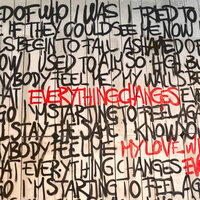 D OF WHO I WAS I TRIED TO
THEY COULD SEE ME NOW
BEGIN TO FALL ASHAMED OF
NOW I USED TO A SO HIGH BU
YBODY FEEL ME MY WALLS BE
EVERYTHING CHANGES
GO I'M STARTING TO FEEL AG
STAY THE SAME I KNOW
NYBODY FEEL ME MY LOVE W
AT EVERYTHING CHANGES EV
GO I'M STARTING TO FEEL AG